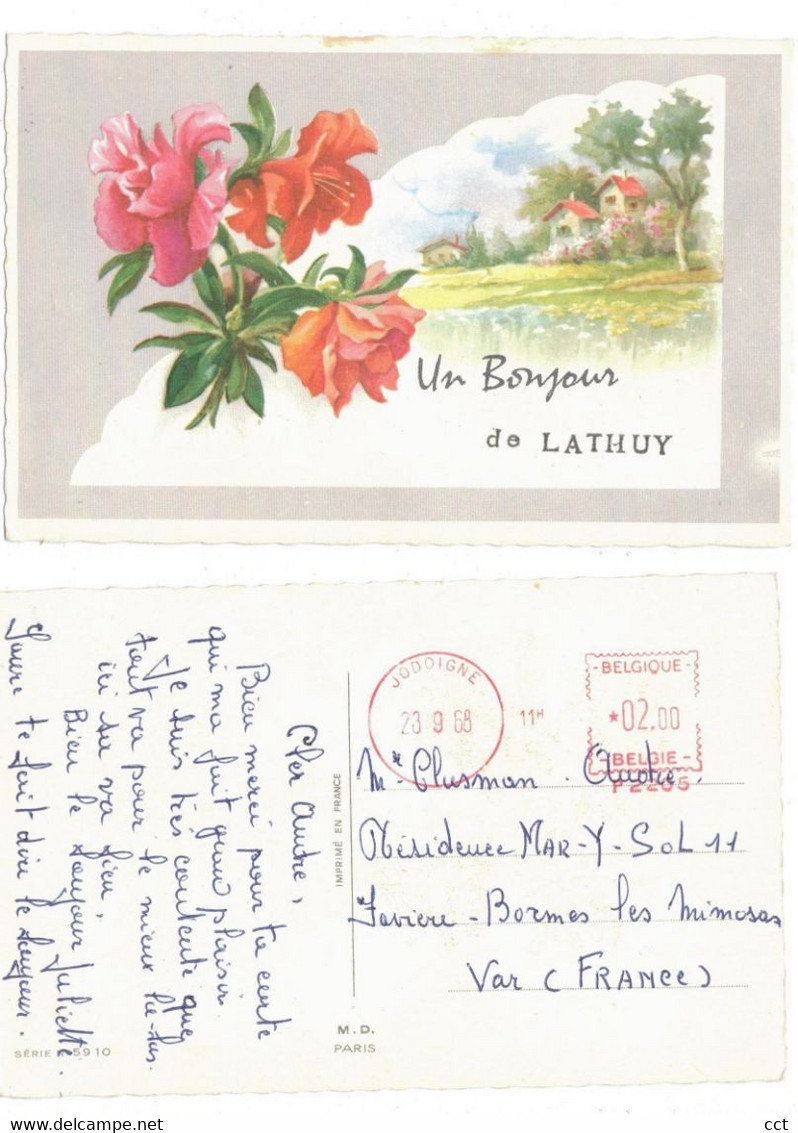 Un Bonjour
de LATHUY
Cher André,
Bien merci pour ta carte
qui ma fait gran plaisir.
Je suis très contente que
tout va pour le mieux là-bas.
ici sa va bien,
Bien le bonjour Juliette.
te fait dire le bonjour.
IMPRIMÉ EN FRANCE
M.D.
PARIS
SÉRIE 5910
JODOIGNE
23 9 68
11H
-BELGIQUE-
*02.00
-BELGIE-
P2205
Mr Clusman. André.
Résidence MAR-Y-SOL 11
Favière-Bormes les Mimosas
Var (FRANCE)
cct